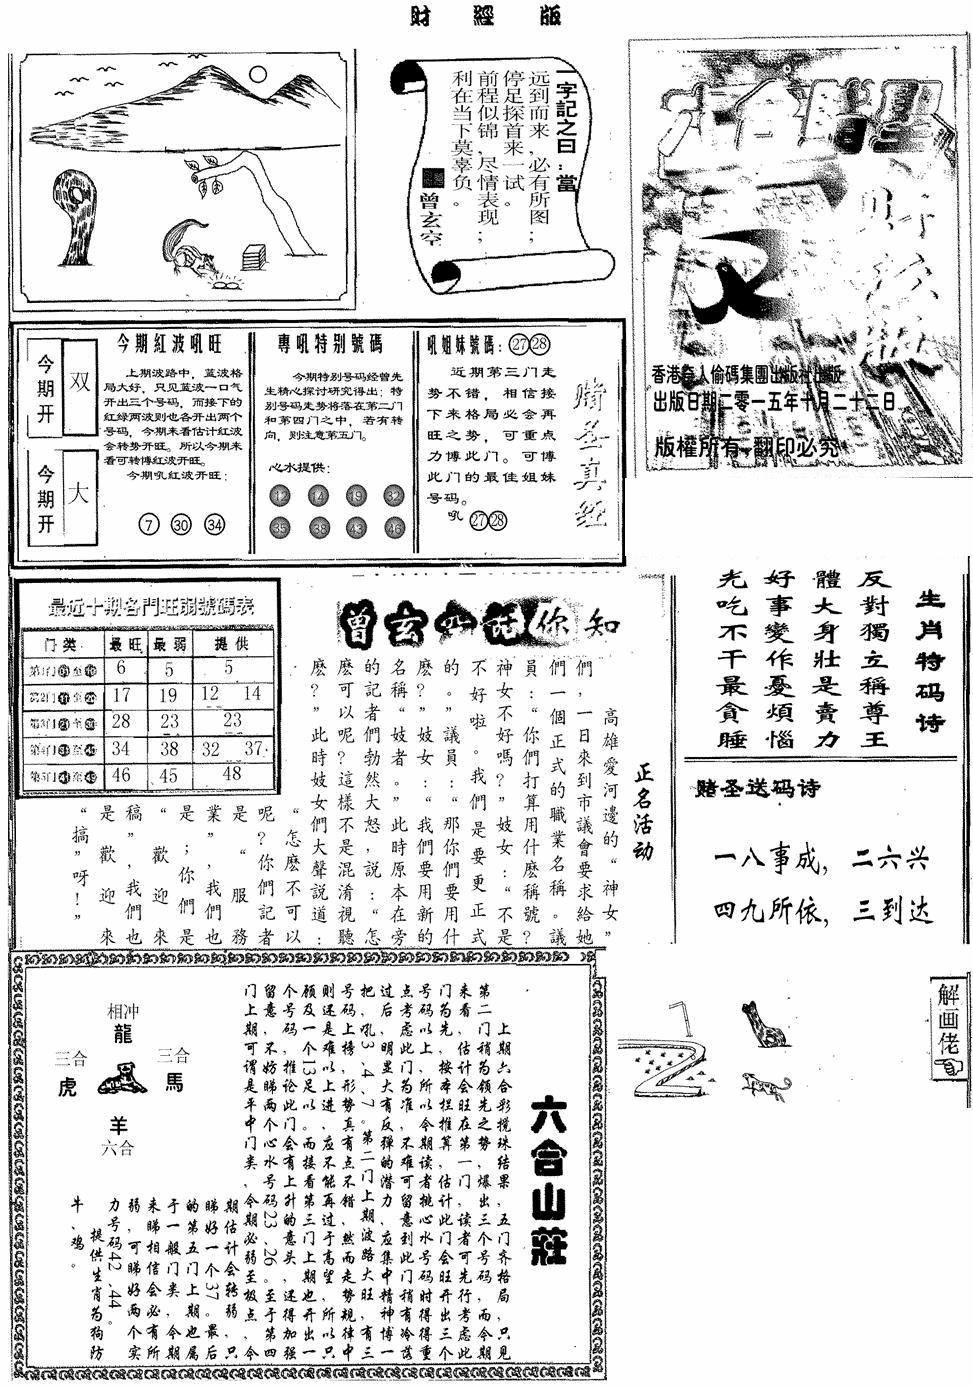 財 經 版
一字記之曰：當
远到而来，必有所图；
停足探首来一试。
前程似锦，尽情表现；
利在当下莫辜负。
曾玄空
六合賭聖
财经版
香港奇人偷碼集團出版社出版
出版日期二零一五年十月二十二日
版權所有·翻印必究
今期开 双
今期开 大
今期紅波吼旺
上期波路中，蓝波格
局大好，只见蓝波一口气
开出三个号码，而接下的
红绿两波则也各开出两个
号码，今期来看估计红波
会转势开旺。所以今期来
看可转博红波开旺。
今期吼红波开旺：
7 30 34
專吼特别號碼
今期特别号码经曾先
生精心探讨研究得出：特
别号码走势将落在第二门
和第四门之中，若有转
向，则注意第五门。
心水提供：
12 14 19 32
35 38 43 46
吼姐妹號碼：27 28
近期第三门走
势不错，相信接
下来格局必会再
旺之势，可重点
力博此门。可博
此门的最佳姐妹
号码。
吼 27 28
赌圣真经
最近十期各門旺弱號碼表
门类 最旺 最弱 提供
6 5 5
17 19 12 14
28 23 23
34 38 32 37
46 45 48
曾玄空話你知
正名活动
高雄愛河邊的“神女”
們，一日來到市議會要求給她
們一個正式的職業名稱。議
員：“你們打算用什麽稱號？
神女不好嗎？”妓女：“不是
不好啦。我們是要更正式
的。”議員：“那你們要用什
麽？”妓女：“我們要用新的
名稱“妓者”。”此時原本在旁
的記者們勃然大怒，説：“怎
麽可以呢？這樣不是混淆視聽
麽？”此時妓女們大聲説道：
“怎麽不可以
呢？你們記者
是“服務
業”，我們也
是；你們是
“歡迎來
稿”，我們也
是歡迎來
“搞”呀！”
生肖特码诗
反對獨立稱尊王
體大身壯是賣力
好事變作憂煩惱
光吃不干最貪睡
赌圣送码诗
一八事成，二六兴
四九所依，三到达
解画佬
相冲
龍
三合
虎
三合
馬
羊
六合
六合山莊
上期六合彩搅珠结果，五门齐格局，只见
第二门稍为领先之势，爆出三个号码，而今期
来看，估计会旺在第一门，读者可先行考虑此
门为先，按本捏推算，估计此门会旺开出三个
号码以上，所以今期读者挑心水号码时得得重
点考虑此门为准，不难可留意到此门稍有冷落
过后，明显大有反弹的潜力，应集中精神博一
把，吼3、4、7。第二门上期波路大旺，有三
号码上榜，形势真有点不错，然而走势规律中
则还是难以上进，应不能再过于高望，所以只
顾及一个13足以。而接看第三门上期也开出一
个号码，推论此门会有上升的意头，还得加强
留意，不妨睇两个心水号码23、26。至于第四
门上期可谓是平中门类，今期必弱至极点，今
期估计会转弱，只
睇好一个37。最后只
的第五门上期也属
于一般门类，今期
来睇相信会必有所
弱，可睇好两个实
力号码42、44。
提供生肖为狗防
牛、鸡。